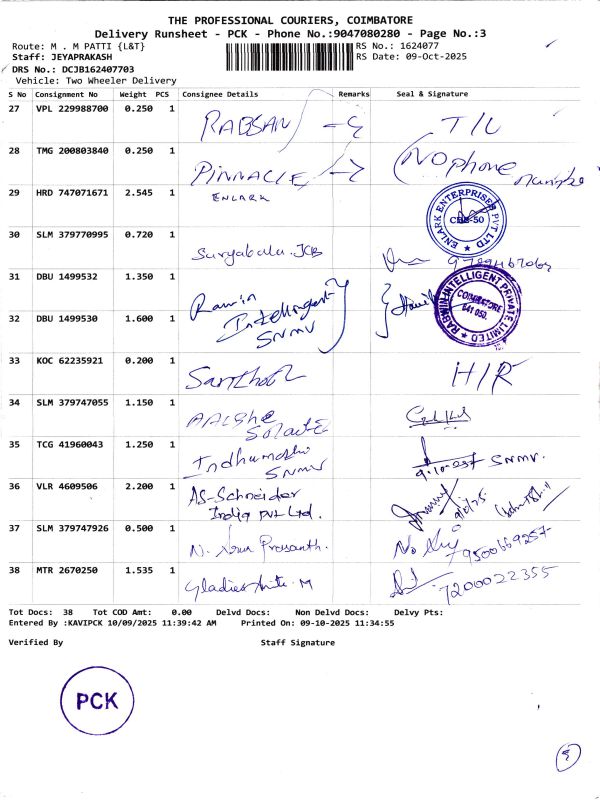 THE PROFESSIONAL COURIERS, COIMBATORE
Delivery Runsheet - PCK - Phone No.:9047080280 - Page No.:3
Route: M . M PATTI {L&T}
RS No.: 1624077
Staff: JEYAPRAKASH
RS Date: 09-Oct-2025
DRS No.: DCJB162407703
Vehicle: Two Wheeler Delivery
S No Consignment No Weight PCS Consignee Details Remarks Seal & Signature
27 VPL 229988700 0.250 1
T/L
28 TMG 200803840 0.250 1
PINNACLE
NO phone
29 HRD 747071671 2.545 1 ENLARK
ENLARK ENTERPRISES PVT LTD
CBE-50
30 SLM 379770995 0.720 1
Suryabala. JCB
31 DBU 1499532 1.350 1
Intelligent
SNMV
RABWIN INTELLIGENT PRIVATE LIMITED
COIMBATORE
641 050.
32 DBU 1499530 1.600 1
33 KOC 62235921 0.200 1
H/R
34 SLM 379747055 1.150 1
35 TCG 41960043 1.250 1
Indhumathi
SNMV
SNMV.
36 VLR 4609506 2.200 1
AS-Schneider
India Pvt Ltd.
37 SLM 379747926 0.500 1
Prasanth.
7950069257
38 MTR 2670250 1.535 1
7200022355
Tot Docs: 38 Tot COD Amt: 0.00 Delvd Docs: Non Delvd Docs: Delvy Pts:
Entered By :KAVIPCK 10/09/2025 11:39:42 AM Printed On: 09-10-2025 11:34:55
Verified By Staff Signature
PCK